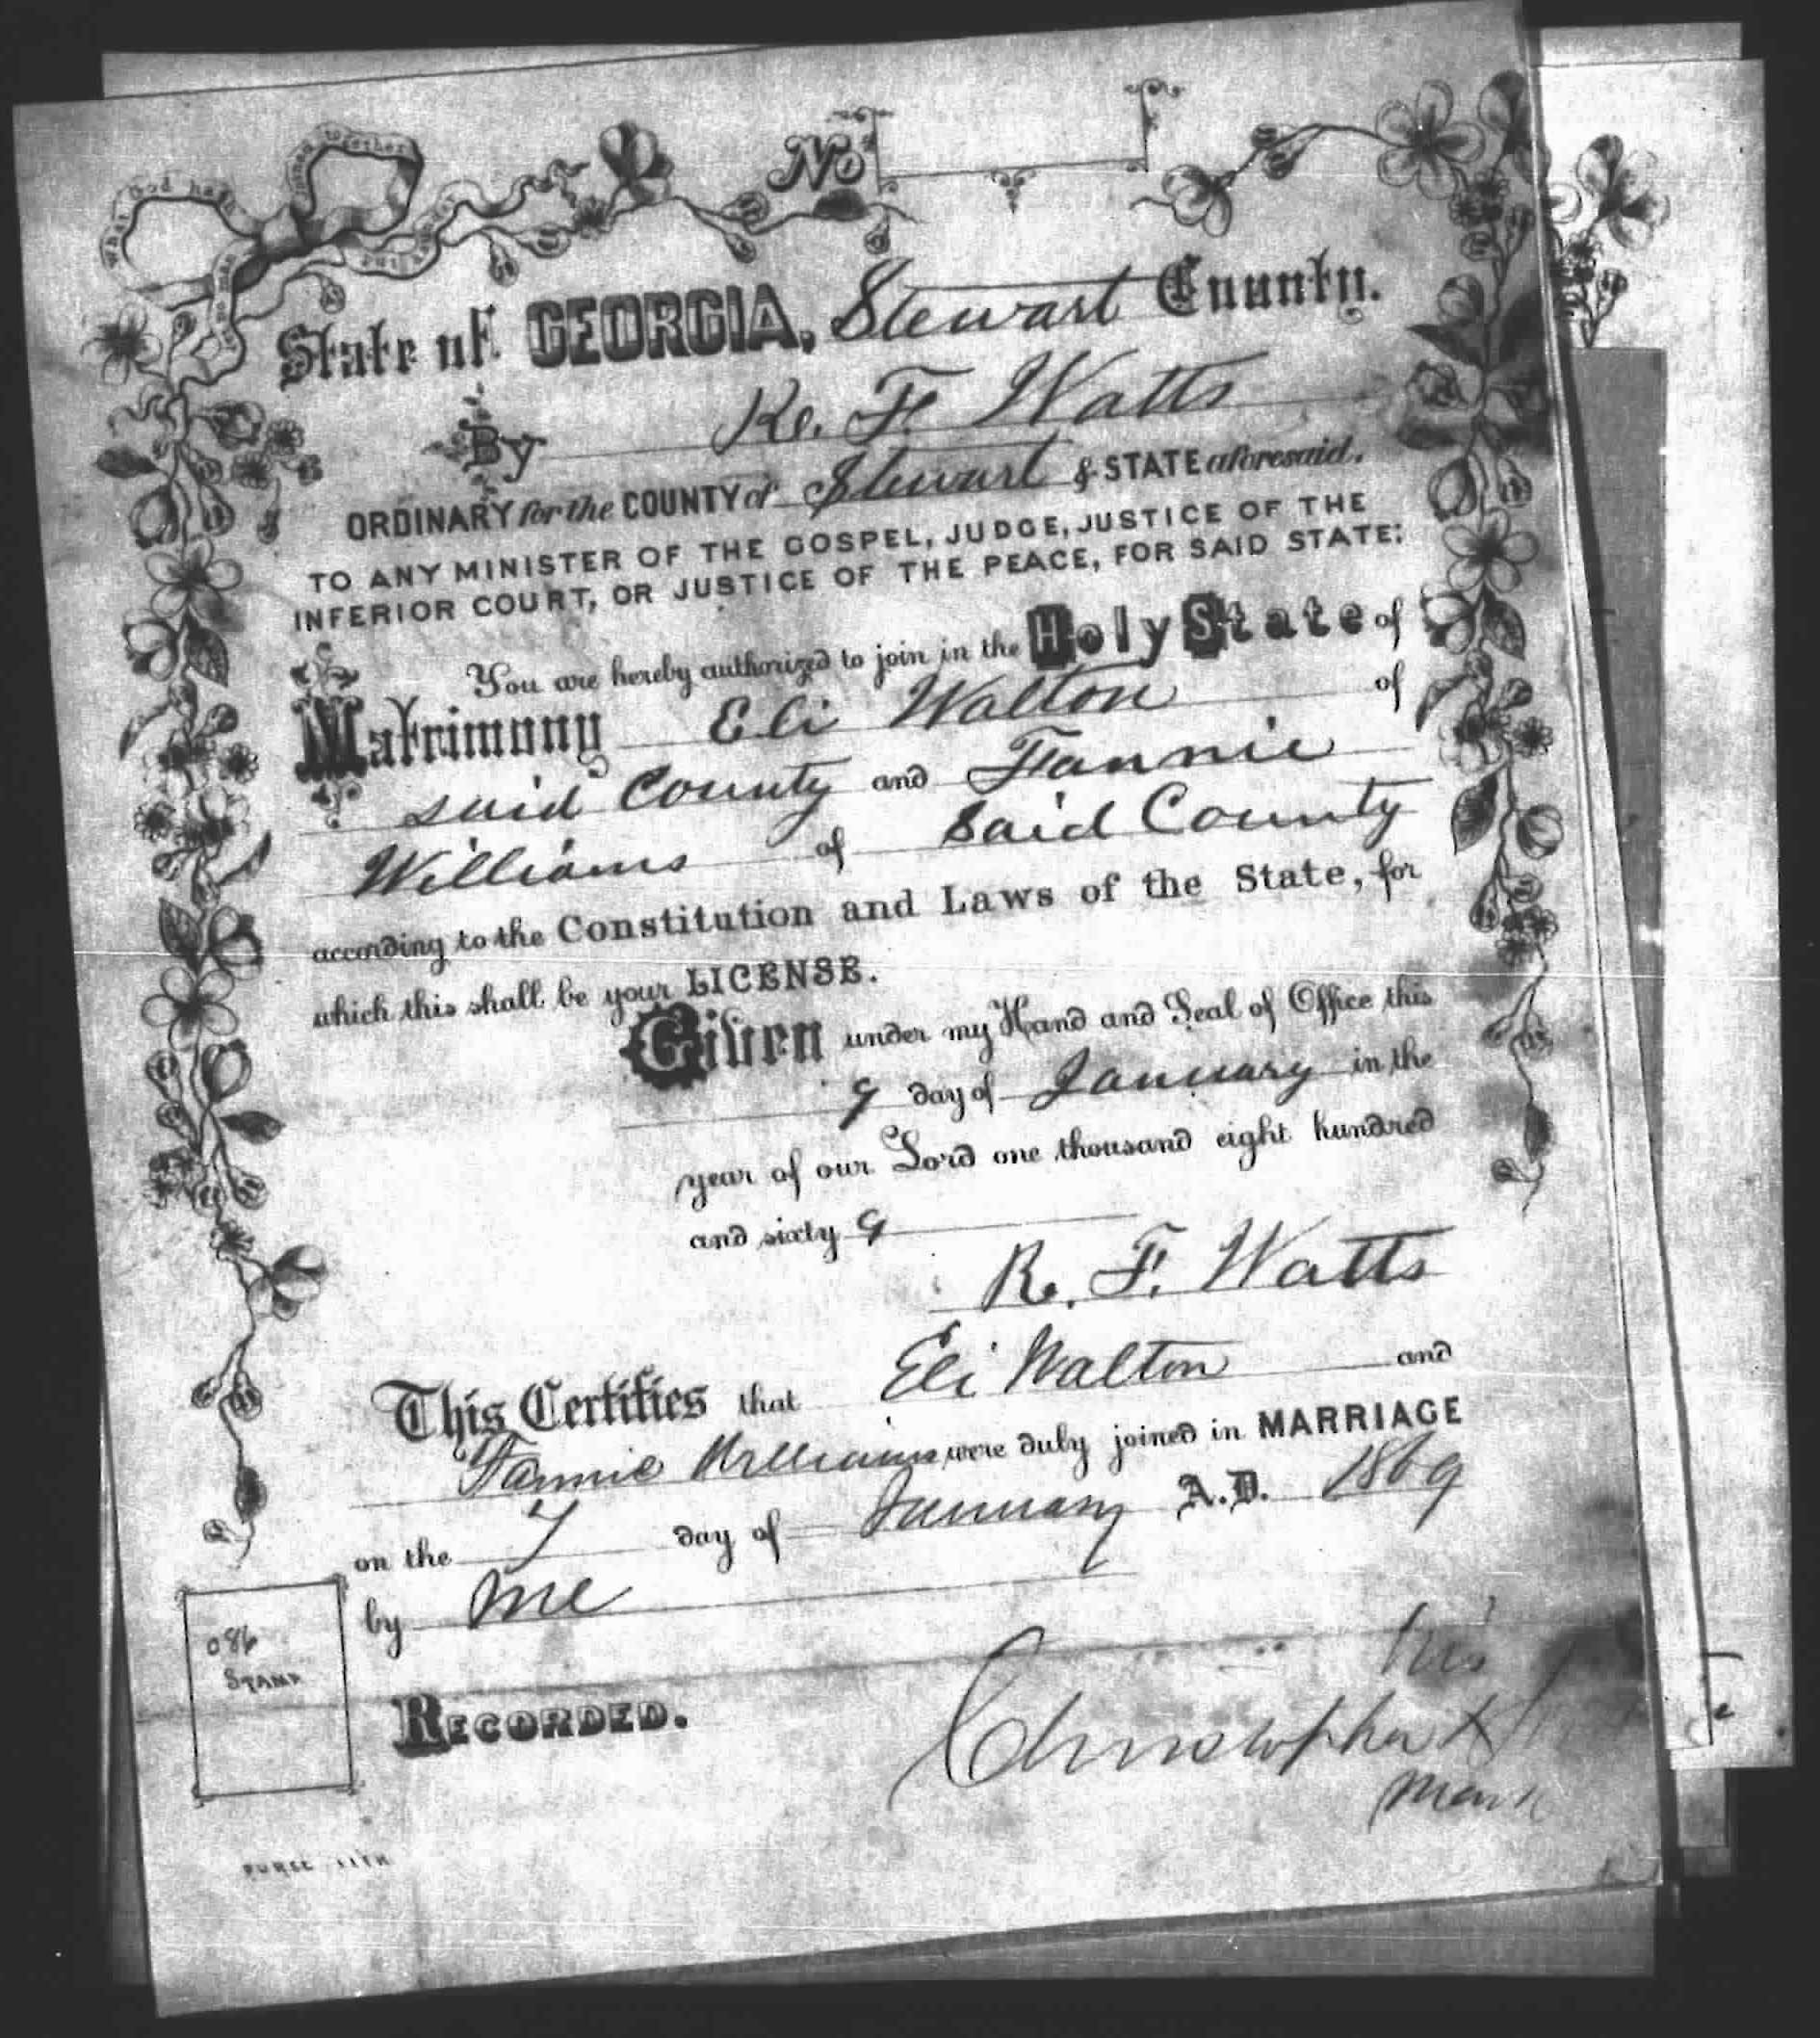 What God hath joined together
let no man put asunder
No
State of GEORGIA, Stewart County.
By R. F. Watts
ORDINARY for the COUNTY of Stewart & STATE aforesaid.
TO ANY MINISTER OF THE GOSPEL, JUDGE, JUSTICE OF THE
INFERIOR COURT, OR JUSTICE OF THE PEACE, FOR SAID STATE:
You are hereby authorized to join in the Holy State of
Matrimony Eli Walton of
said County and Fannie
Williams of said County
according to the Constitution and Laws of the State, for
which this shall be your LICENSE.
Given under my Hand and Seal of Office this
9 day of January in the
year of our Lord one thousand eight hundred
and sixty 9
R. F. Watts
This Certifies that Eli Walton and
Fannie Williams were duly joined in MARRIAGE
on the 7 day of January A.D. 1869
by me
his
Christopher X
mark
086
STAMP
RECORDED.
PURSE LITH